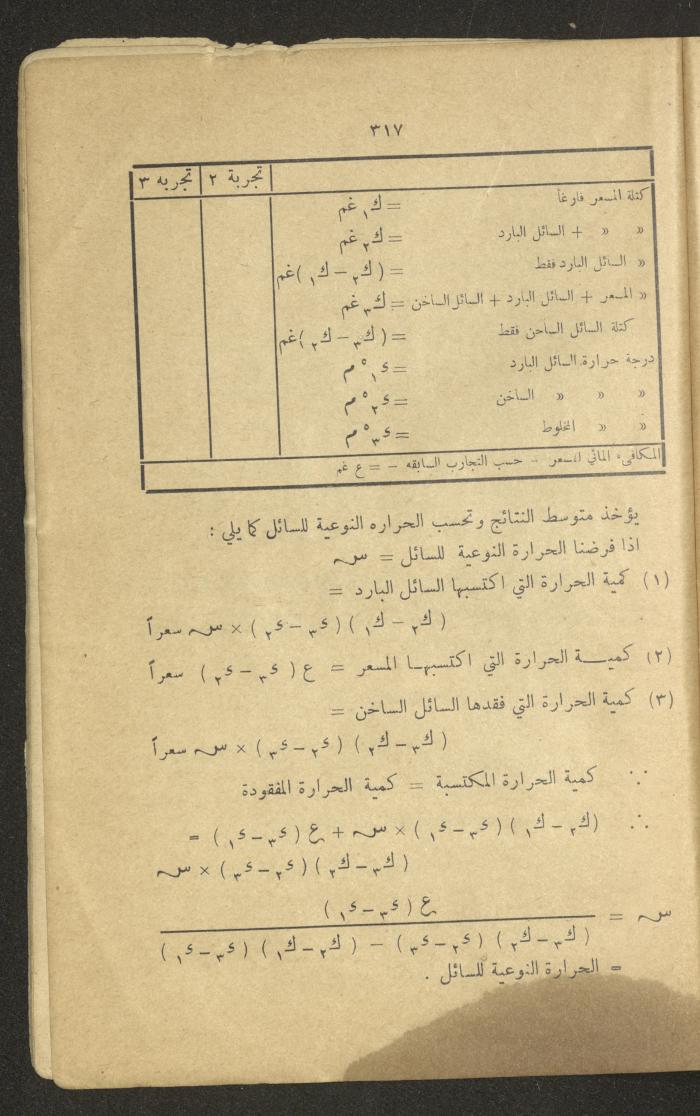 ٣١٧
تجربة ٢ تجربه ٣
كتلة المسعر فارغاً = ك١ غم
« « + السائل البارد = ك٢ غم
« السائل البارد فقط = ( ك٢ – ك١ )غم
« المسعر + السائل البارد + السائل الساخن = ك٣ غم
كتلة السائل الساخن فقط = ( ك٣ – ك٢ )غم
درجة حرارة السائل البارد = ء١ ° م
« « « الساخن = ء٢ ° م
« « المخلوط = ء٣ ° م
المكافيء المائي للمسعر – حسب التجارب السابقه – = ع غم
يؤخذ متوسط النتائج وتحسب الحراره النوعية للسائل كما يلي :
اذا فرضنا الحرارة النوعية للسائل = س
(١) كمية الحرارة التي اكتسبها السائل البارد =
( ك٢ – ك١ ) ( ء٣ – ء٢ ) × س سعراً
(٢) كميـة الحرارة التي اكتسبهـا المسعر = ع ( ء٣ – ء٢ ) سعراً
(٣) كمية الحرارة التي فقدها السائل الساخن =
( ك٣ – ك٢ ) ( ء٢ – ء٣ ) × س سعراً
∵ كمية الحرارة المكتسبة = كمية الحرارة المفقودة
∴ (ك٢ – ك١ ) ( ء٣ – ء١ ) × س + ع ( ء٣ – ء١ ) =
( ك٣ – ك٢ ) ( ء٢ – ء٣ ) × س
ع ( ء٣ – ء١ )
س =
( ك٣ – ك٢ ) ( ء٢ – ء٣ ) – ( ك٢ – ك١ ) ( ء٣ – ء١ )
= الحرارة النوعية للسائل .